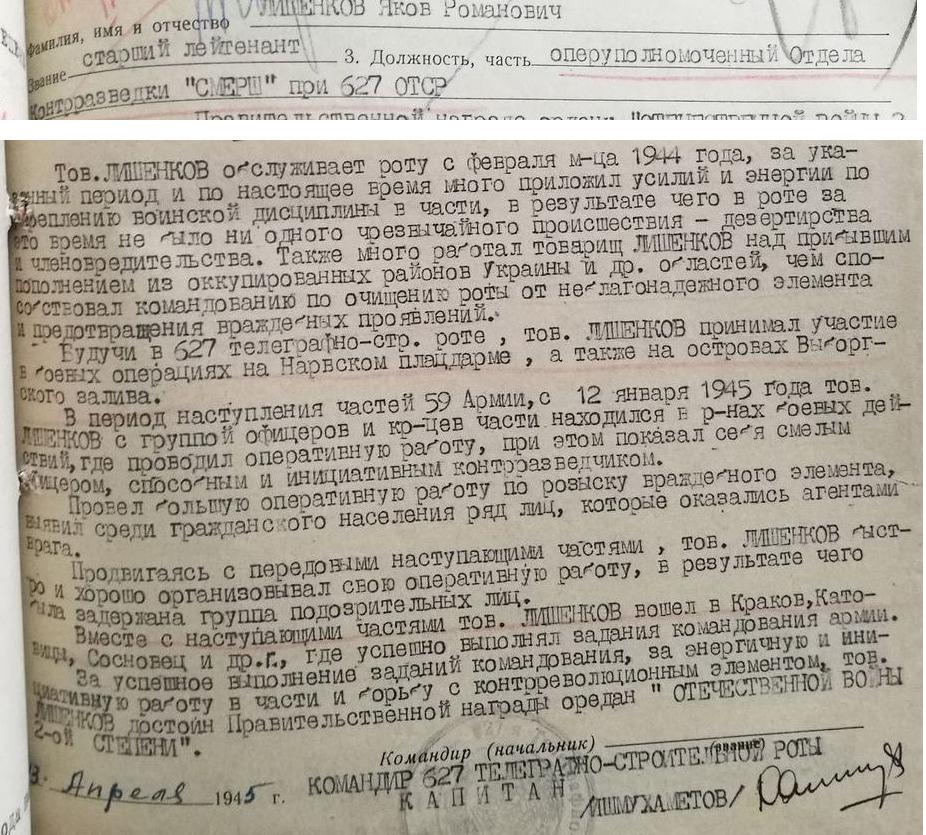 ЛИШЕНКОВ Яков Романович
Фамилия, имя и отчество
Звание старший лейтенант 3. Должность, часть оперуполномоченный Отдела
Контрразведки "СМЕРШ" при 627 ОТСР
Правительственной награде орден "ОТЕЧЕСТВЕННОЙ ВОЙНЫ 2
Тов.ЛИШЕНКОВ обслуживает роту с февраля м-ца 1944 года, за ука-
занный период и по настоящее время много приложил усилий и энергии по
укреплению воинской дисциплины в части, в результате чего в роте за
это время не было ни одного чрезвычайного происшествия - дезертирства
и членовредительства. Также много работал товарищ ЛИШЕНКОВ над прибывшим
пополнением из оккупированных районов Украины и др. областей, чем спо-
собствовал командованию по очищению роты от неблагонадежного элемента
и предотвращения враждебных проявлений.
Будучи в 627 телеграфно-стр. роте , тов. ЛИШЕНКОВ принимал участие
в боевых операциях на Нарвском плацдарме , а также на островах Выборг-
ского залива.
В период наступления частей 59 Армии,с 12 января 1945 года тов.
ЛИШЕНКОВ с группой офицеров и кр-цев части находился в р-нах боевых дей-
ствий,где проводил оперативную работу, при этом показал себя смелым
офицером, способным и инициативным контрразведчиком.
Провел большую оперативную работу по розыску враждебного элемента,
выявил среди гражданского населения ряд лиц, которые оказались агентами
врага.
Продвигаясь с передовыми наступающими частями , тов. ЛИШЕНКОВ быст-
ро и хорошо организовывал свою оперативную работу, в результате чего
была задержана группа подозрительных лиц.
Вместе с наступающими частями тов. ЛИШЕНКОВ вошел в Краков,Като-
вицы, Сосновец и др.г., где успешно выполнял задания командования армии.
За успешное выполнение заданий командования, за энергичную и ини-
циативную работу в части и борьбу с контрреволюционным элементом, тов.
ЛИШЕНКОВ достоин Правительственной награды оредан " ОТЕЧЕСТВЕННОЙ ВОЙНЫ
2-ой СТЕПЕНИ".
Командир (начальник)
(звание)
КОМАНДИР 627 ТЕЛЕГРАФНО-СТРОИТЕЛЬНОЙ РОТЫ
3. Апреля 1945 г.
КАПИТАН /ИШМУХАМЕТОВ/